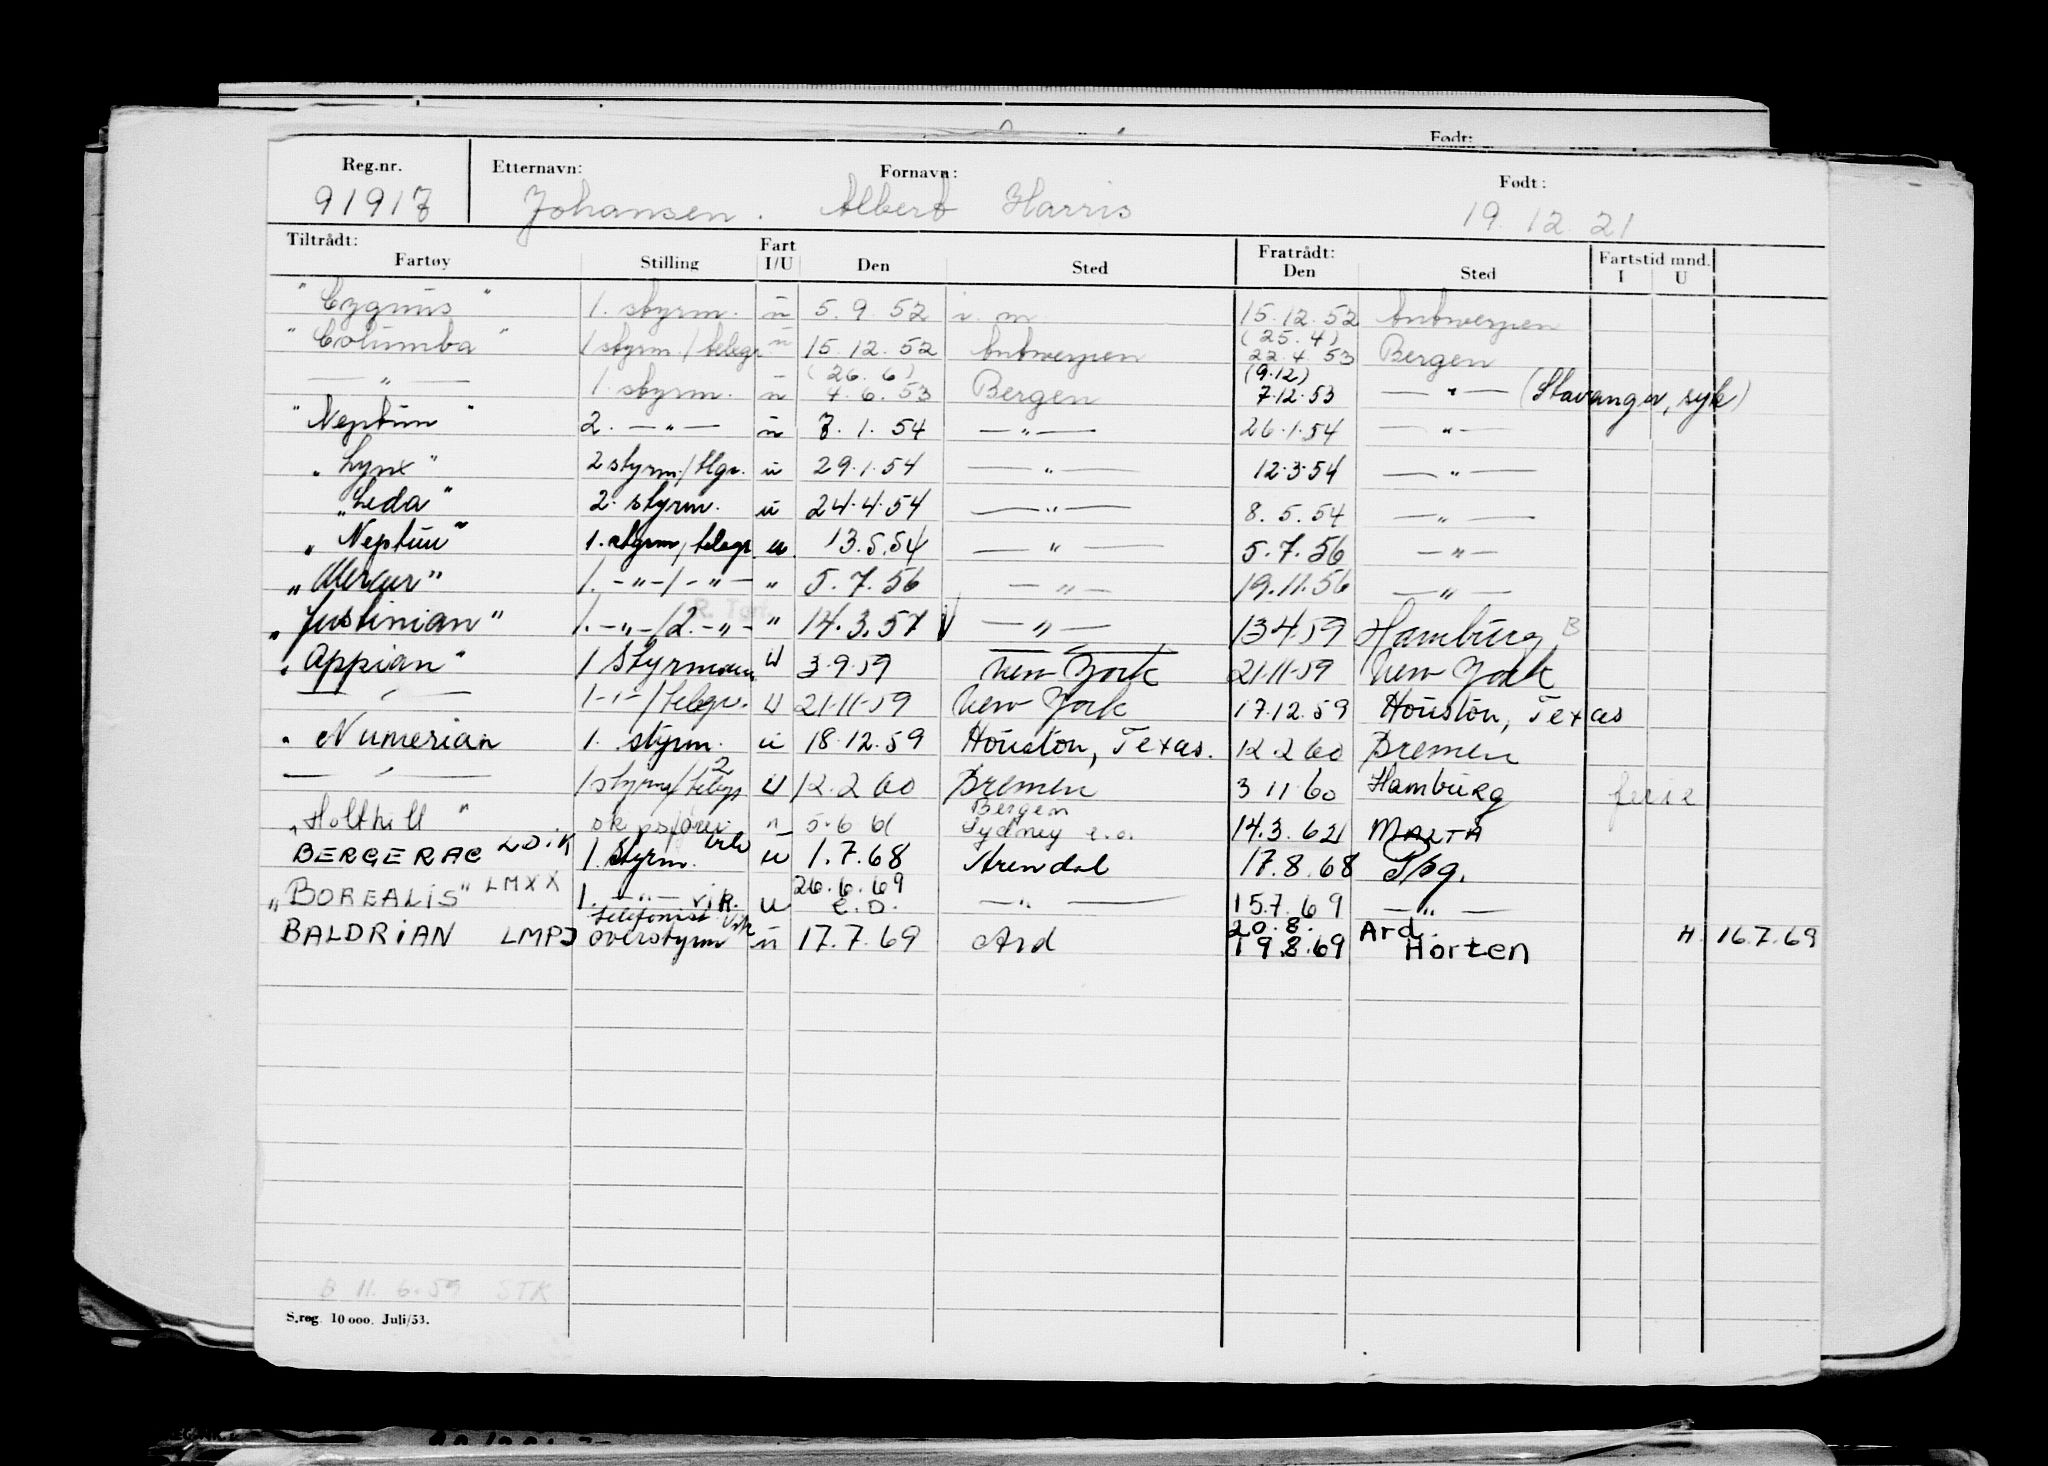 Født:
Reg.nr. Etternavn: Fornavn: Født:
91917 Johansen. Albert Harris 19.12.21
Tiltrådt: Fart Fratrådt: Fartstid mnd.
Fartøy Stilling I/U Den Sted Den Sted I U
"Cygnus" 1. styrm. u 5.9.52 i.m 15.12.52 Antwerpen
"Columba" 1 styrm/telegr u 15.12.52 Antwerpen (25.4) 22.4.53 Bergen
—"— 1. styrm. u (26.6) 4.6.53 Bergen (9.12) 7.12.53 —"— (Stavanger, syk)
"Neptun" 2. —"— u 7.1.54 —"— 26.1.54 —"—
"Lynx" 2 styrm./tlgr. u 29.1.54 —"— 12.3.54 —"—
"Leda" 2. styrm. u 24.4.54 —"— 8.5.54 —"—
"Neptun" 1. styrm/telegr. u. 13.5.54 —"— 5.7.56 —"—
"Mercur" 1. —"—/—"— " 5.7.56 —"— 19.11.56 —"—
"Justinian" 1. —"—/2. —"— " 14.3.57 V —"— 13.4.59 Hamburg B
"Appian" 1 Styrmann U 3.9.59 New York 21.11.59 New York
—"— 1-"-/telegr. U 21.11.59 New York 17.12.59 Houston, Texas
" Numerian 1. styrm. u 18.12.59 Houston, Texas. 12.2.60 Bremen
—"— 1 styrm/2 telegr U 12.2.60 Bremen 3.11.60 Hamburg ferie
"Holthill" u 5.6.61 Bergen Sydney e.o. 14.3.62 MALTA
BERGERAC LDiK 1. Styrm. vik u 1.7.68 Arendal 17.8.68 Pbg.
"BOREALIS" LMXX 1. —"— vik. u 26.6.69 e.o. —"— 15.7.69 —"—
BALDRIAN LMPJ telefonist overstyrm vik u 17.7.69 Ard 20.8. Ard.
19.8.69 Horten H 16.7.69
B 11.6.59 STK
S.reg. 10 000. Juli/53.